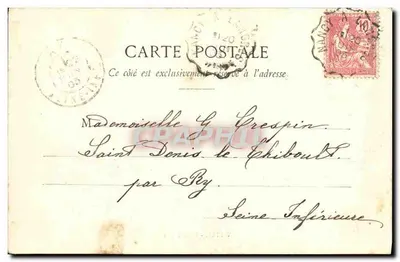 CARTE POSTALE
Ce côté est exclusivement réservé à l'adresse.
Mademoiselle G Crespin.
Saint Denis le Thiboult.
par Ry.
Seine Inférieure.